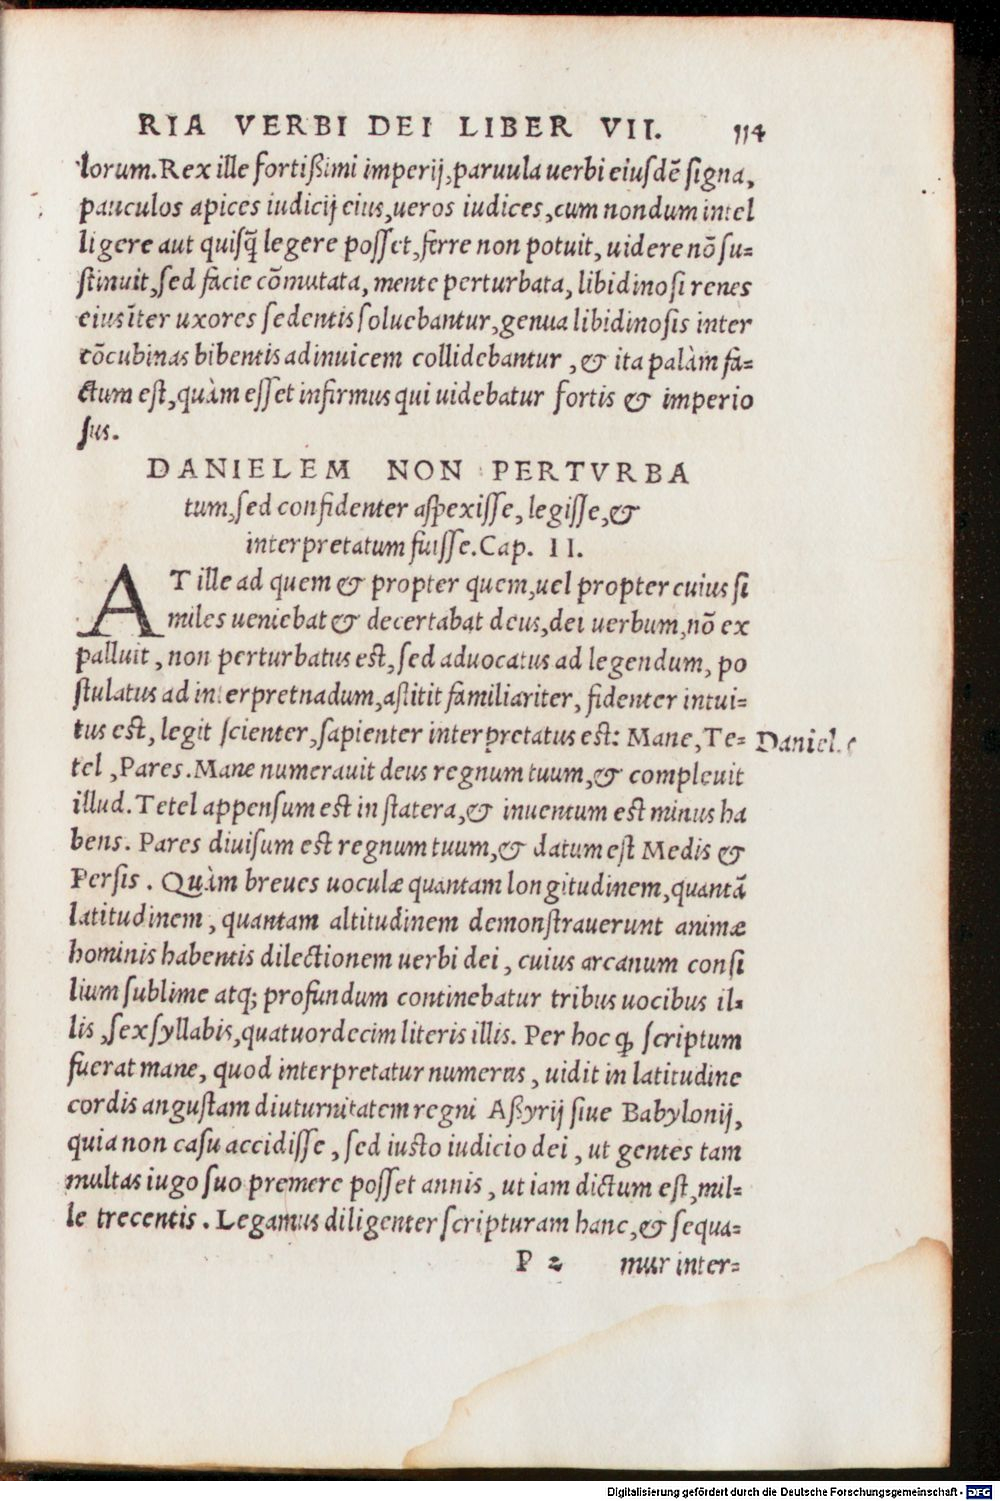 RIA VERBI DEI LIBER VII. 114
lorum. Rex ille fortißimi imperij, paruula uerbi eiusdē signa,
pauculos apices iudicij eius, ueros iudices, cum nondum intel
ligere aut quisq̃ legere posset, ferre non potuit, uidere nō su=
stinuit, sed facie cōmutata, mente perturbata, libidinosi renes
eius īter uxores sedentis soluebantur, genua libidinosis inter
cōcubinas bibentis adinuicem collidebantur, & ita palàm fa=
ctum est, quàm esset infirmus qui uidebatur fortis & imperio
sus.
DANIELEM NON PERTVRBA
tum, sed confidenter aspexisse, legisse, &
interpretatum fuisse. Cap. II.
AT ille ad quem & propter quem, uel propter cuius si
miles ueniebat & decertabat deus, dei uerbum, nō ex
palluit, non perturbatus est, sed aduocatus ad legendum, po
stulatus ad interpretnadum, astitit familiariter, fidenter intui=
tus est, legit scienter, sapienter interpretatus est: Mane, Te=
Daniel.
tel, Pares. Mane numerauit deus regnum tuum, & compleuit
illud. Tetel appensum est in statera, & inuentum est minus ha
bens. Pares diuisum est regnum tuum, & datum est Medis &
Persis. Quàm breues uoculæ quantam longitudinem, quantā
latitudinem, quantam altitudinem demonstrauerunt animæ
hominis habentis dilectionem uerbi dei, cuius arcanum consi
lium sublime atq; profundum continebatur tribus uocibus il=
lis, sex syllabis, quatuordecim literis illis. Per hoc ꝙ scriptum
fuerat mane, quod interpretatur numerus, uidit in latitudine
cordis angustam diuturnitatem regni Aßyrij siue Babylonij,
quia non casu accidisse, sed iusto iudicio dei, ut gentes tam
multas iugo suo premere posset annis, ut iam dictum est, mil=
le trecentis. Legamus diligenter scripturam hanc, & sequa=
P 2 mur inter=
Digitalisierung gefördert durch die Deutsche Forschungsgemeinschaft - DFG